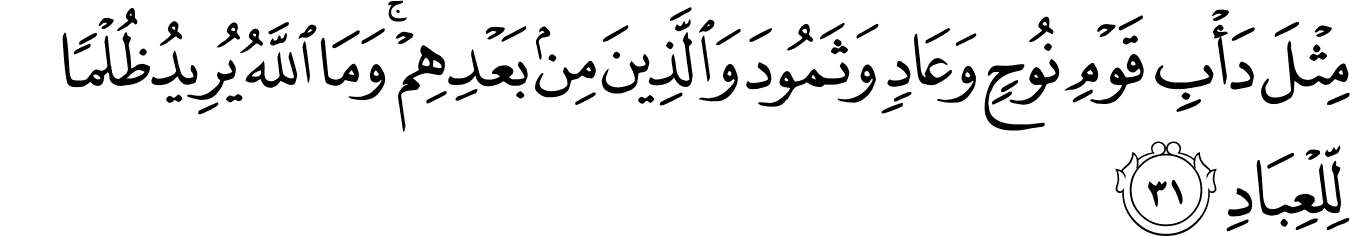 مِثْلَ دَأْبِ قَوْمِ نُوحٍ وَعَادٍ وَثَمُودَ وَٱلَّذِينَ مِنۢ بَعْدِهِمْ ۚ وَمَا ٱللَّهُ يُرِيدُ ظُلْمًا
لِّلْعِبَادِ ٣١